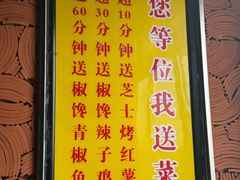 您等位我送菜
超10分钟送芝士烤红薯
超30分钟送椒馋辣子鸡
超60分钟送椒馋青椒鱼